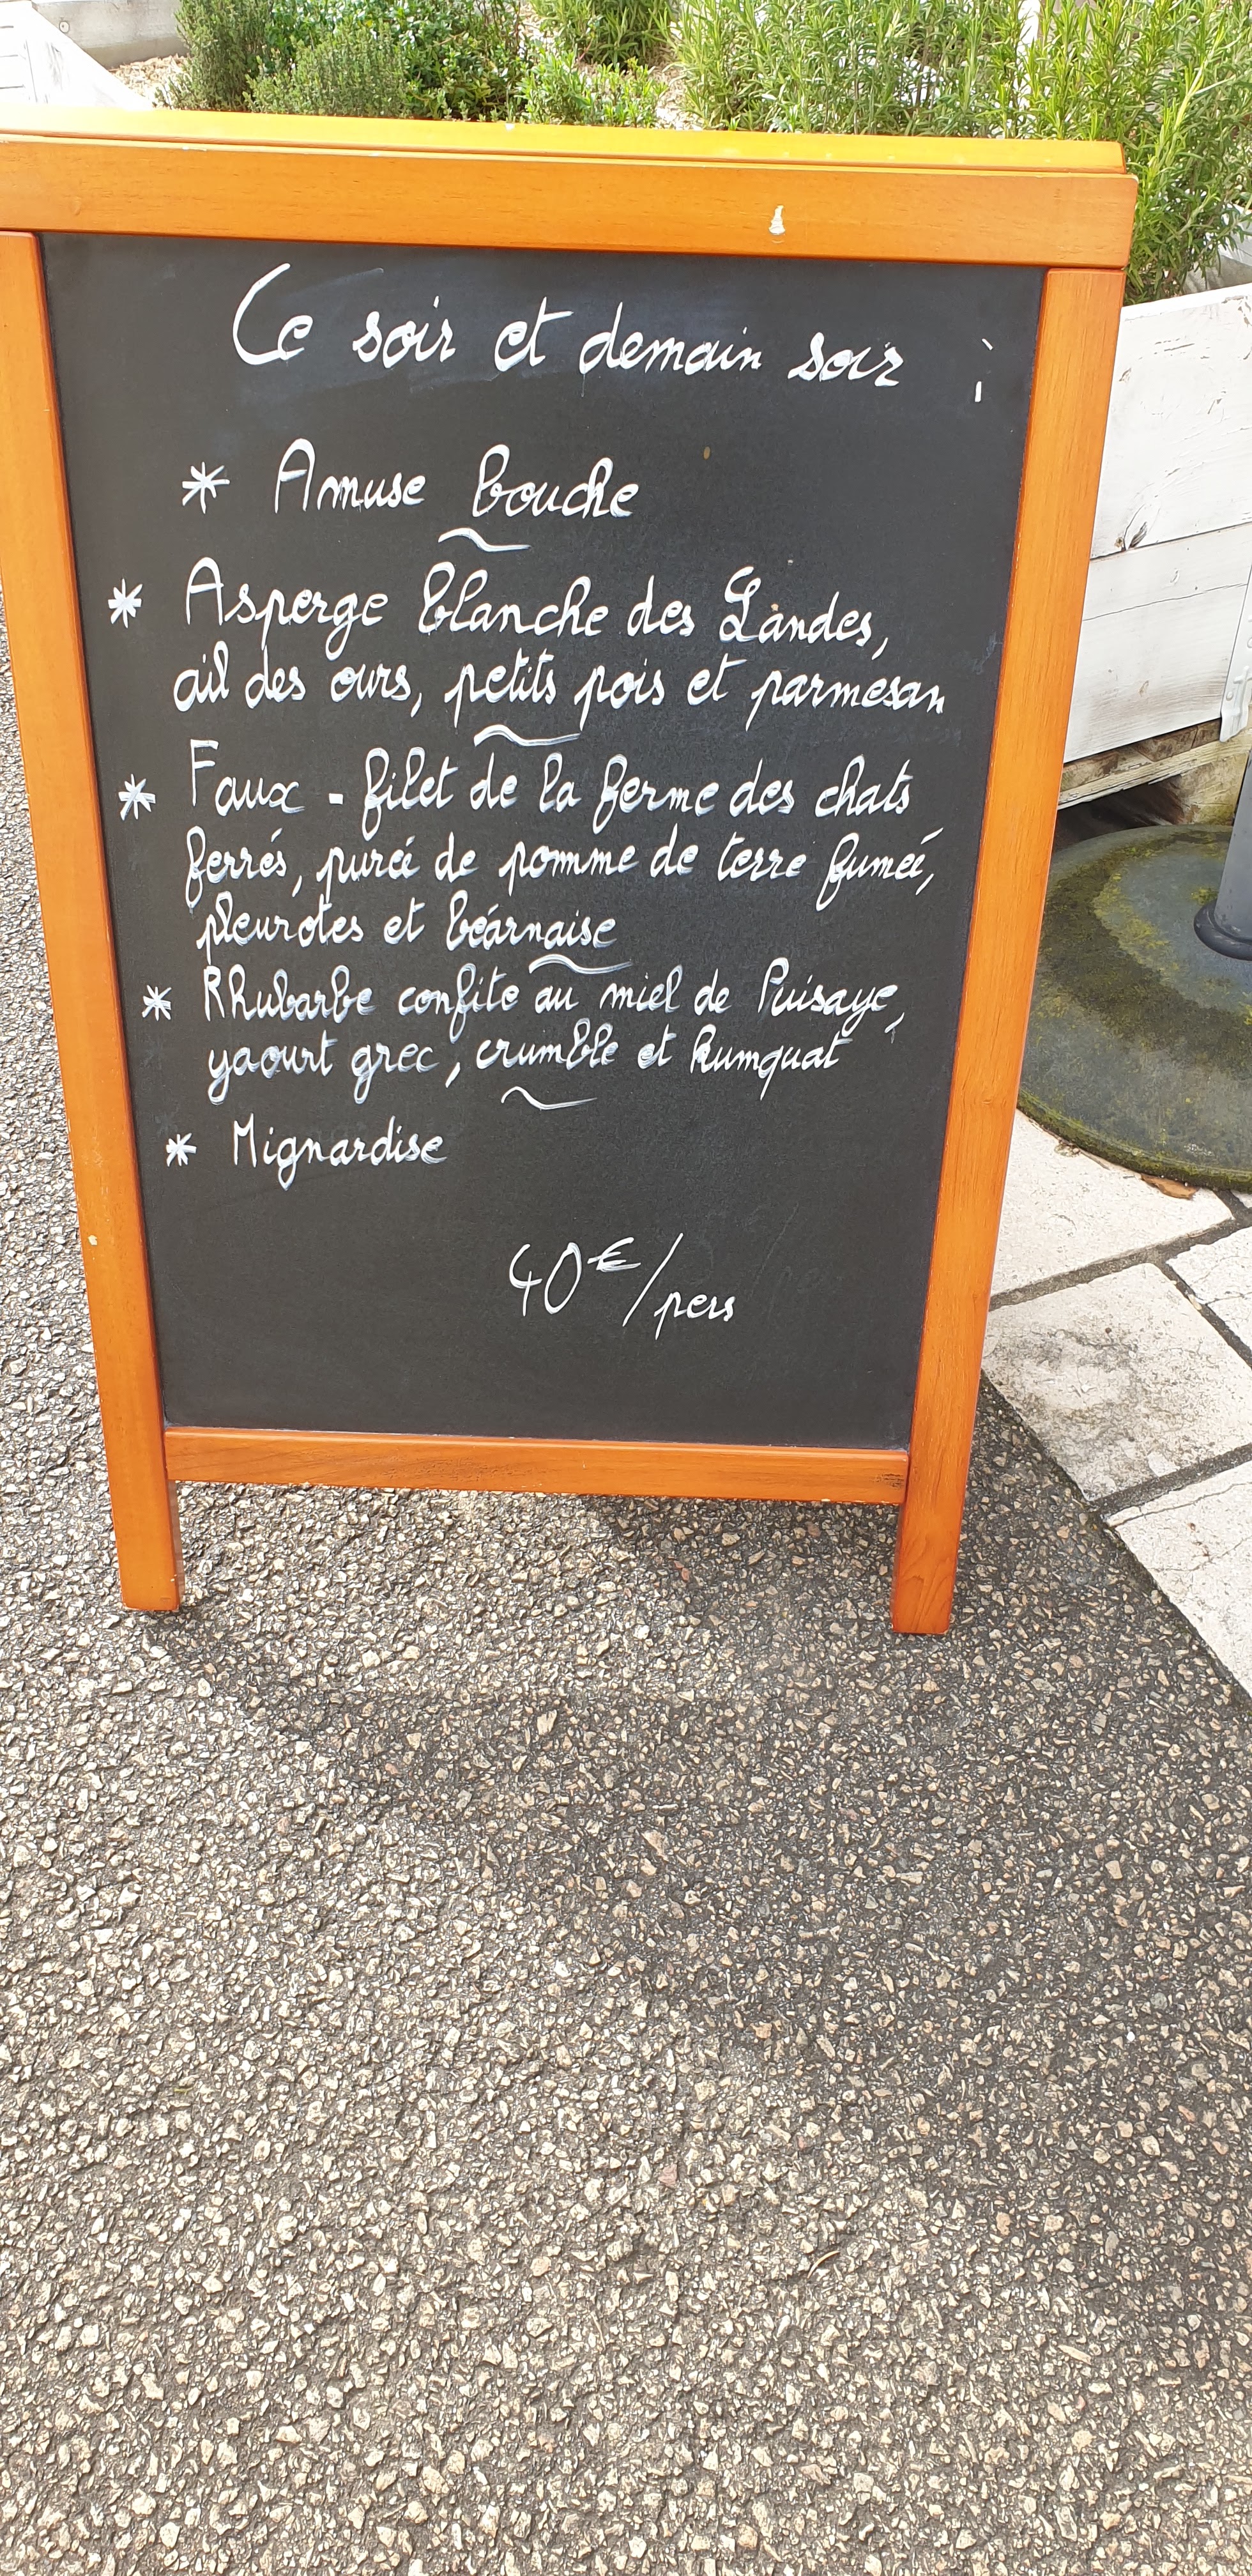 Ce soir et demain soir :
* Amuse bouche
* Asperge blanche des Landes,
ail des ours, petits pois et parmesan
* Faux - filet de la ferme des chats
ferrés, purée de pomme de terre fumée,
pleurotes et béarnaise
* Rhubarbe confite au miel de Puisaye,
yaourt grec, crumble et kumquat
* Mignardise
40€/pers